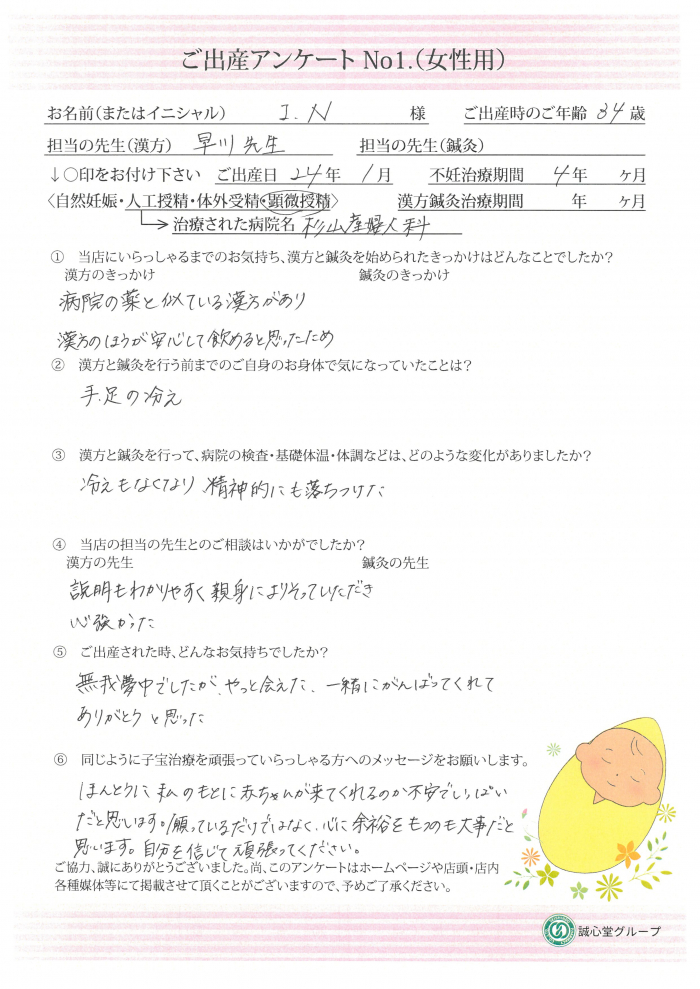 ご出産アンケート No1.(女性用)
お名前(またはイニシャル) I.N 様 ご出産時のご年齢 34 歳
担当の先生(漢方) 早川先生 担当の先生(鍼灸)
↓○印をお付け下さい ご出産日 24 年 1 月 不妊治療期間 4 年 ヶ月
〈自然妊娠・人工授精・体外受精・顕微授精〉 漢方鍼灸治療期間 年 ヶ月
治療された病院名 杉山産婦人科
① 当店にいらっしゃるまでのお気持ち、漢方と鍼灸を始められたきっかけはどんなことでしたか?
漢方のきっかけ 鍼灸のきっかけ
病院の薬と似ている漢方があり
漢方のほうが安心して飲めると思ったため
② 漢方と鍼灸を行う前までのご自身のお身体で気になっていたことは?
手.足の冷え
③ 漢方と鍼灸を行って、病院の検査・基礎体温・体調などは、どのような変化がありましたか?
冷えもなくなり、精神的にも落ちつけた
④ 当店の担当の先生とのご相談はいかがでしたか?
漢方の先生 鍼灸の先生
説明もわかりやすく親身によりそっていただき
心強かった
⑤ ご出産された時、どんなお気持ちでしたか?
無我夢中でしたが、やっと会えた、一緒にがんばってくれて
ありがとう と思った
⑥ 同じように子宝治療を頑張っていらっしゃる方へのメッセージをお願いします。
ほんとうに私のもとに赤ちゃんが来てくれるのか不安でいっぱい
だと思います。願っているだけではなく、心に余裕をもつのも大事だと
思います。自分を信じて頑張ってください。
ご協力、誠にありがとうございました。尚、このアンケートはホームページや店頭・店内
各種媒体等にて掲載させて頂くことがございますので、予めご了承ください。
誠心堂グループ